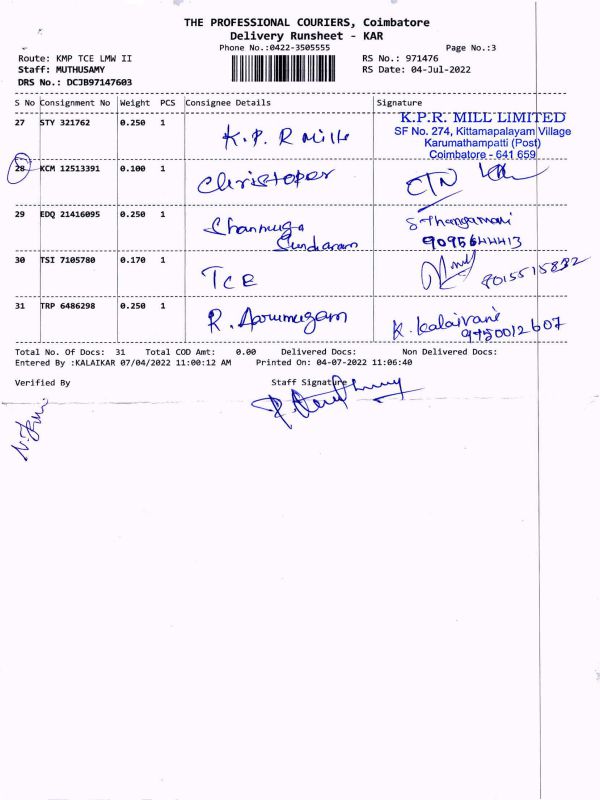 THE PROFESSIONAL COURIERS, Coimbatore
Delivery Runsheet - KAR
Phone No.:0422-3505555
Page No.:3
Route: KMP TCE LMW II
RS No.: 971476
Staff: MUTHUSAMY
RS Date: 04-Jul-2022
DRS No.: DCJB97147603
S No Consignment No Weight PCS Consignee Details Signature
27 STY 321762 0.250 1 K.P. R Mills
K.P.R. MILL LIMITED
SF No. 274, Kittamapalayam Village
Karumathampatti (Post)
Coimbatore - 641 659
28 KCM 12513391 0.100 1 Christoper CTN
29 EDQ 21416095 0.250 1 Shanmuga Sundaram
S Thangamani
9095644413
30 TSI 7105780 0.170 1 TCE 8015515832
31 TRP 6486298 0.250 1 R. Aarumugam
K. Kalaivani
9450012607
Total No. Of Docs: 31 Total COD Amt: 0.00 Delivered Docs: Non Delivered Docs:
Entered By :KALAIKAR 07/04/2022 11:00:12 AM Printed On: 04-07-2022 11:06:40
Verified By Staff Signature